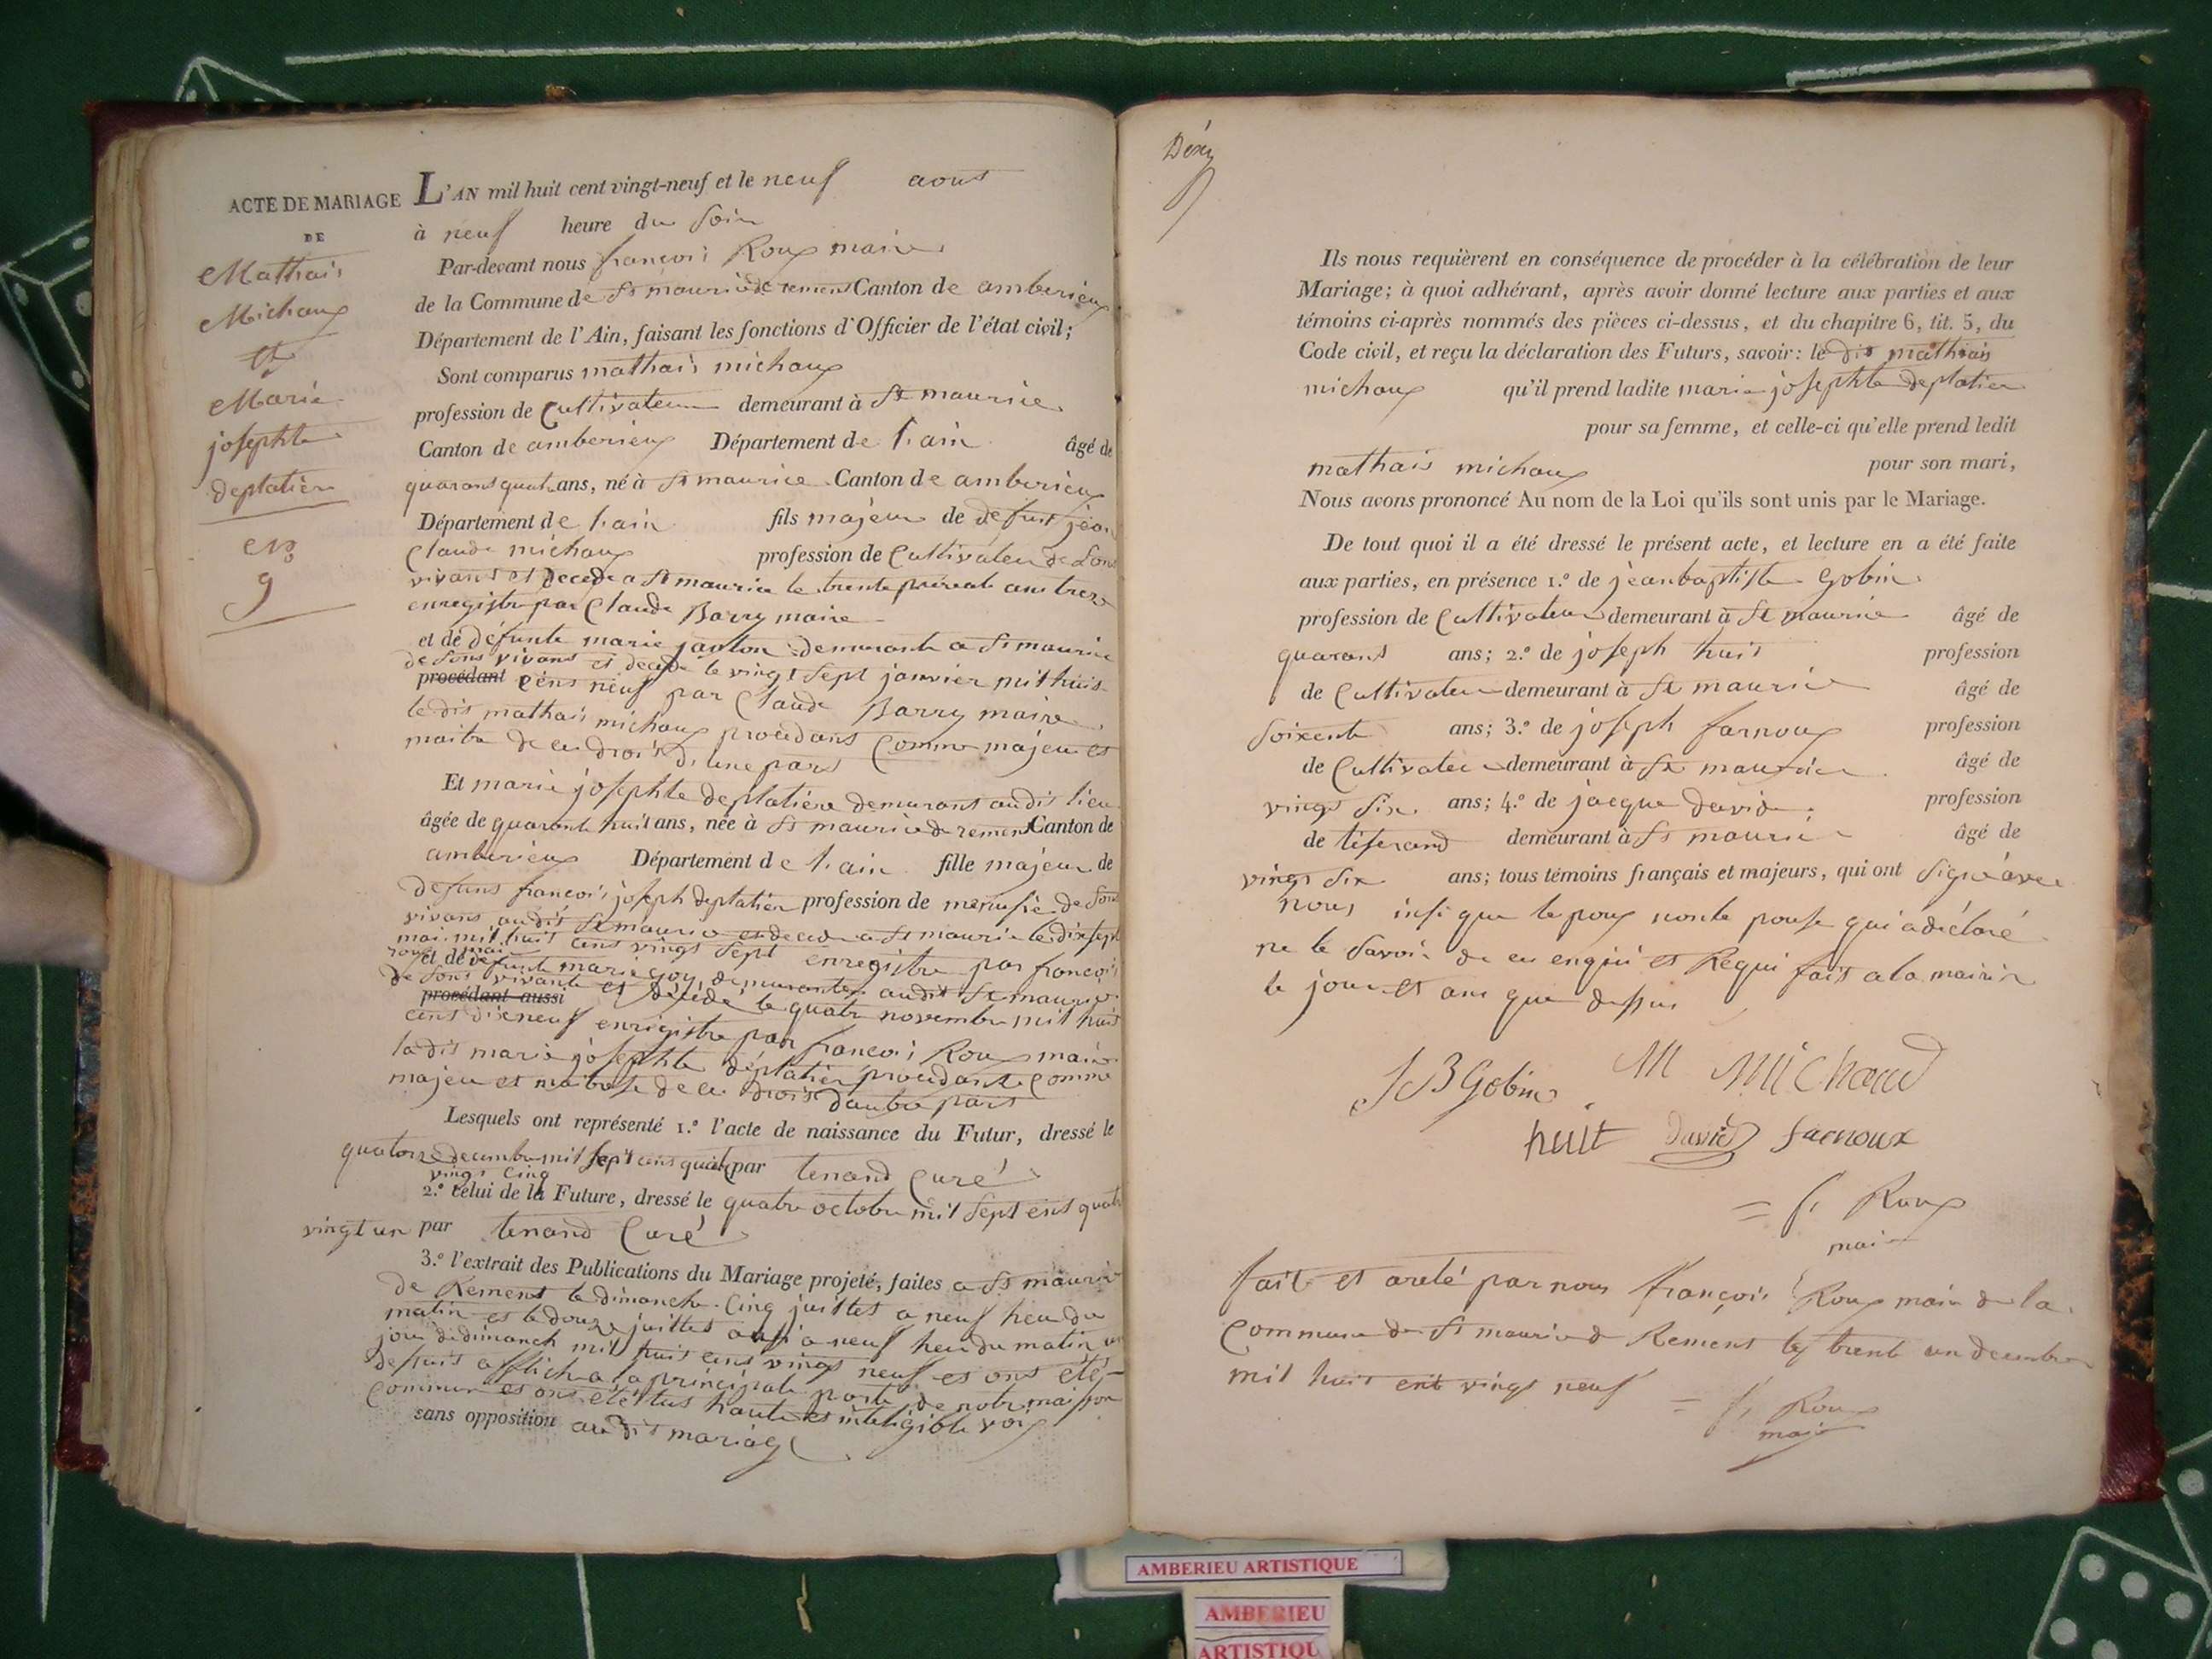 ACTE DE MARIAGE
DE
Mathais
Michoux
et
Marie
josephte
deplatière
No
9
L'AN mil huit cent vingt-neuf et le neuf aout
à neuf heure du soir
Par-devant nous françois Roux maire
de la Commune de St maurice de remens Canton de amberieux
Département de l'Ain, faisant les fonctions d'Officier de l'état civil;
Sont comparus mathais michoux
profession de Cultivateur demeurant à St maurice
Canton de amberieux Département de l'ain âgé de
quarant quatre ans, né à St maurice Canton de amberieux
Département de l'ain fils majeur de defunt jean
Claude michoux profession de Cultivateur de Sont
vivant et decede a St maurice le trente préreal an treze
enregistre par Claude Barry maire
et de défunte marie janton demurante a St maurice
de Sont vivant et decede le vingt Sept janvier mil huit
procédant cens neuf par Claude Barry maire
le dit mathais michoux procedant Comme majeur et
maitre de ce droit d'une part
Et marie josephte deplatière demurant audit lieu
âgée de quarante huit ans, née à St maurice de remens Canton de
amberieux Département de l'ain fille majeur de
defunt françois joseph deplatière profession de menusié de Sont
vivant audit St maurice et decede a St maurice le dix sept
mai mil huit cens vingt Sept enregistre par françois
roux maire
et de défunte marie goy demurante audit St maurice
de Sont vivante et décédé le quatre novembre mil huit
procédant aussi
cens dix neuf enregistre par françois Roux maire
la dit marie josephte déplatière procedante Comme
majeur et maitrese de ce droit d'autre part
Lesquels ont représenté 1.° l'acte de naissance du Futur, dressé le
quatorze decembre mil Sept cens quatre par tenand Curé
vingt Cinq
2.° celui de la Future, dressé le quatre octobre mil Sept cens quatre
vingt un par tenand Curé
3.° l'extrait des Publications du Mariage projeté, faites a St maurice
de Remens le dimanche Cinq juillet a neuf heu du
matin et le douze juillet ausi a neuf heu du matin un
jour de dimanch mil huit cens vingt neuf et ont étés
depuis affiche a la principale porte de notre maisson
commune et ont été lus haute et inteligible voix
sans opposition audit mariage
Ils nous requièrent en conséquence de procéder à la célébration de leur
Mariage; à quoi adhérant, après avoir donné lecture aux parties et aux
témoins ci-après nommés des pièces ci-dessus, et du chapitre 6, tit. 5, du
Code civil, et reçu la déclaration des Futurs, savoir: le dit mathiais
michoux qu'il prend ladite marie josephte deplatière
pour sa femme, et celle-ci qu'elle prend ledit
mathais michoux pour son mari,
Nous avons prononcé Au nom de la Loi qu'ils sont unis par le Mariage.
De tout quoi il a été dressé le présent acte, et lecture en a été faite
aux parties, en présence 1.° de jeanbaptiste Gobin
profession de Cultivateur demeurant à St maurice âgé de
quarant ans; 2.° de joseph huit profession
de Cultivateur demeurant à St maurice âgé de
Soixente ans; 3.° de joseph farnoux profession
de Cultivateur demeurant à St maurice âgé de
vingt Six ans; 4.° de jacque david profession
de tiserand demeurant à St maurice âgé de
vingt Six ans; tous témoins français et majeurs, qui ont Signé avec
nous insi que le poux nonle pouse qui a déclaré
ne le Savoir de ce enquit et Requi fait a la mairie
le jour et ans que dessus
J B Gobin M Michaud
huit david farnoux
= f, Roux
maire
fait et areté par nous françois Roux maire de la
Commune de St maurice de Remens le trente un decembre
mil huit cent vingt neuf = f, Roux
maire
AMBERIEU ARTISTIQUE
AMBERIEU
ARTISTIQU